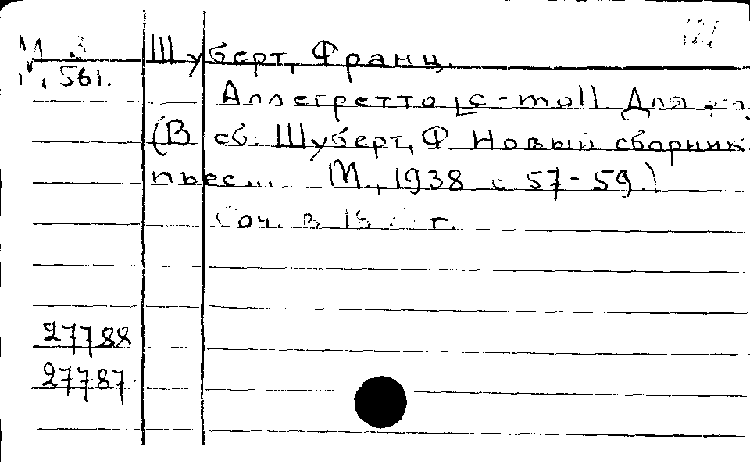 М 3 Шуберт, Франц.
561.
Аллегретто [c-moll Для
(В сб. Шуберт, Ф. Новый сборник
пьес... М., 1938 с 57-59.)
Соч. в г.
27788
27787